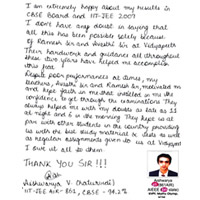 I am extremely happy about my results in
CBSE Board and IIT-JEE 2007
I don't have any doubt in saying that
all this has been possible solely because
of Raman Sir and Sir at Vidyapeeth
Their handwork and guidance all throughout
these two years have helped me accomplish
this feat
Despite poor performances at times, my
teachers, Sir and Raman Sir, motivated me
and kept faith in me that instilled in me the
confidence to get through the examinations. They
always helped me with my doubts as late as 11
at night and 6 in the morning. They kept us all
par with other students in the country providing
us with the best study material & tests as well
as regular assignments given to us at Vidyapeeth
I owe it all to them
THANK YOU SIR!!!
Aishwarya V. Chaturvedi
IIT-JEE AIR- 861, CBSE - 94.2%
Aishwarya